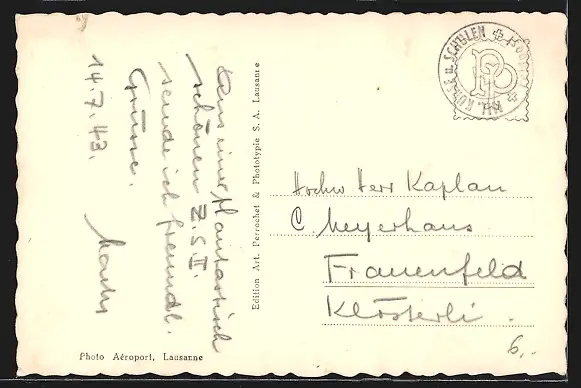 Aus einer phantastisch
schönen Z.S.II.
sende ich freundl.
Grüsse.
14.7.43.
Edition Art. Perrochet & Phototypie S. A. Lausanne
Photo Aéroport, Lausanne
KURSE U. SCHULEN
Hochw Herr Kaplan
C. Meyerhans
Frauenfeld
Klösterli.
6,-